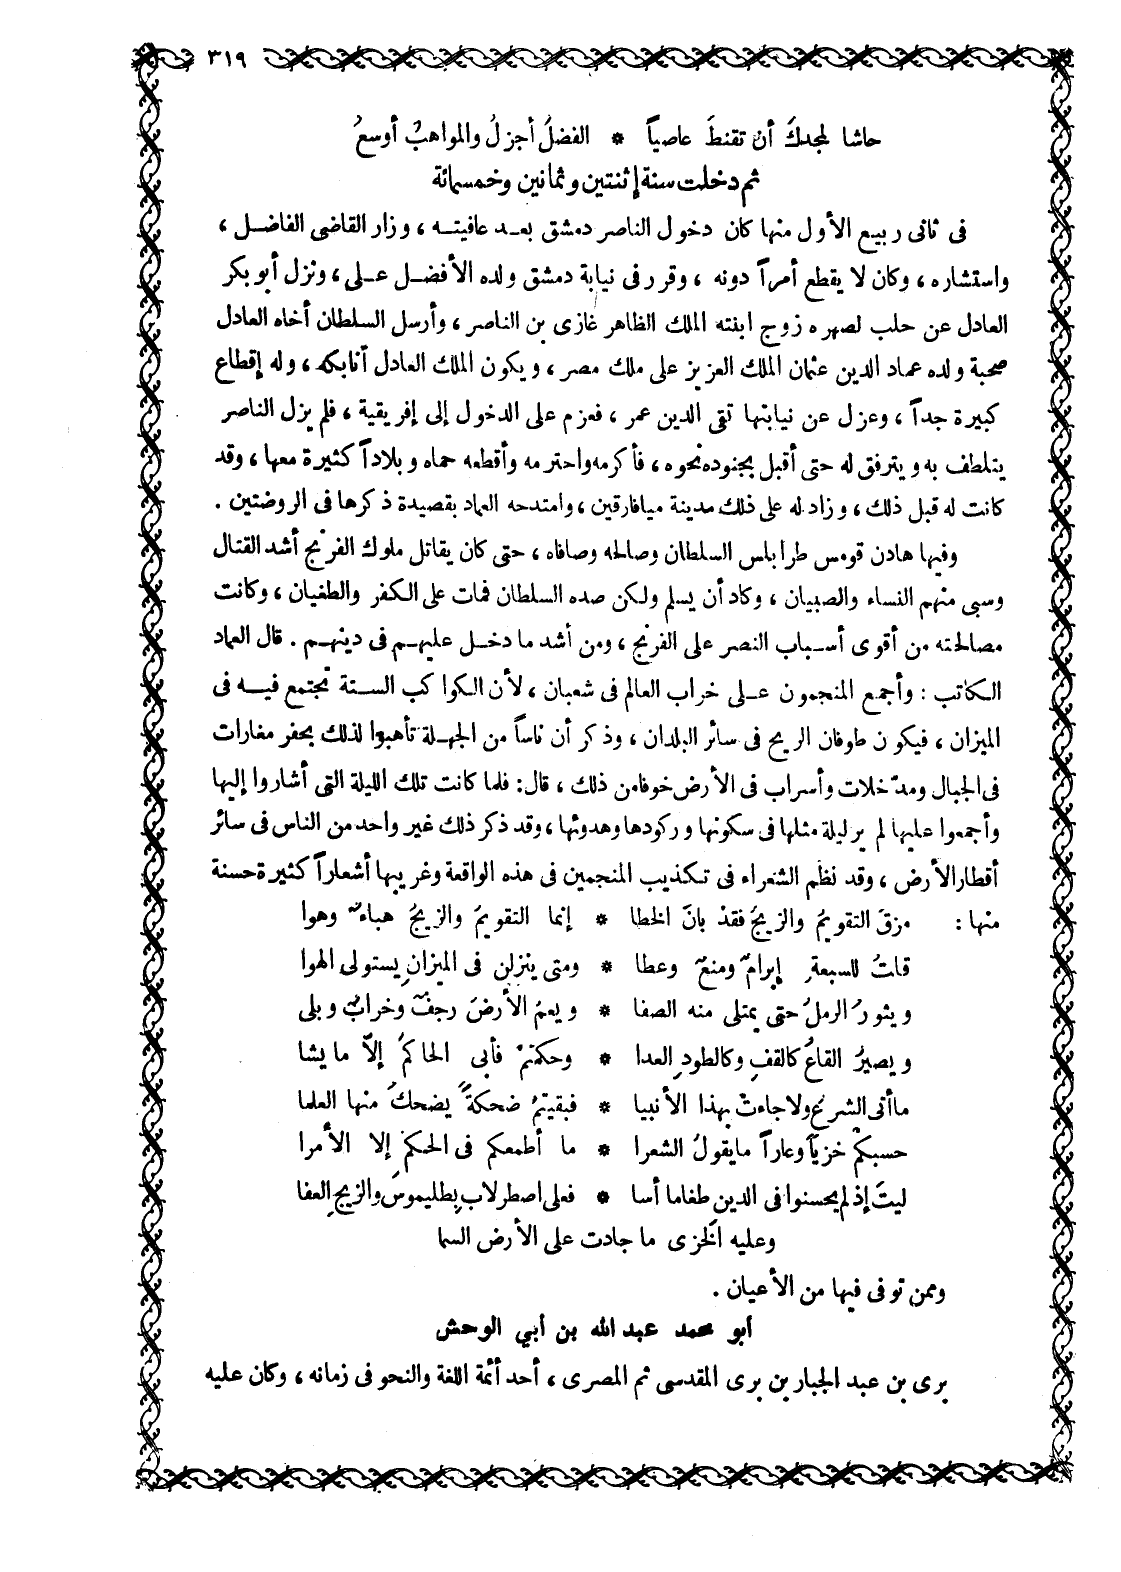 ٣١٩
حاشا لمجدكَ أن تقنطَ عاصياً * الفضلُ أجزلُ والمواهبُ أوسعُ
ثم دخلت سنة إثنتين وثمانين وخمسمائة
فى ثانى ربيع الأول منها كان دخول الناصر دمشق بعد عافيته ، وزار القاضى الفاضل ،
واستشاره ، وكان لا يقطع أمراً دونه ، وقرر فى نيابة دمشق ولده الأفضل على ، ونزل أبو بكر
العادل عن حلب لصهره زوج ابنته الملك الظاهر غازى بن الناصر ، وأرسل السلطان أخاه العادل
صحبة ولده عماد الدين عثمان الملك العزيز على ملك مصر ، ويكون الملك العادل أتابكه ، وله إقطاع
كبيرة جداً ، وعزل عن نيابتها تقى الدين عمر ، فعزم على الدخول إلى إفريقية ، فلم يزل الناصر
يتلطف به ويترفق له حتى أقبل بجنوده نحوه ، فأكرمه واحترمه وأقطعه حماه وبلاداً كثيرة معها ، وقد
كانت له قبل ذلك ، وزاد له على ذلك مدينة ميافارقين ، وامتدحه العماد بقصيدة ذكرها فى الروضتين .
وفيها هادن قومس طرابلس السلطان وصالحه وصافاه ، حتى كان يقاتل ملوك الفرنج أشد القتال
وسبى منهم النساء والصبيان ، وكاد أن يسلم ولكن صده السلطان فمات على الكفر والطغيان ، وكانت
مصالحته من أقوى أسباب النصر على الفرنج ، ومن أشد ما دخل عليهم فى دينهم . قال العماد
الكاتب : وأجمع المنجمون على خراب العالم فى شعبان ، لأن الكواكب الستة تجتمع فيه فى
الميزان ، فيكون طوفان الريح فى سائر البلدان ، وذكر أن ناساً من الجهلة تأهبوا لذلك بحفر مغارات
فى الجبال ومدّخلات وأسراب فى الأرض خوفا من ذلك ، قال : فلما كانت تلك الليلة التى أشاروا إليها
وأجمعوا عليها لم ير ليلة مثلها فى سكونها وركودها وهدوئها ، وقد ذكر ذلك غير واحد من الناس فى سائر
أقطار الأرض ، وقد نظم الشعراء فى تكذيب المنجمين فى هذه الواقعة وغريبها أشعاراً كثيرة حسنة
منها : مزقَ التقويمُ والزيجُ فقدْ بانَ الخطا * إنما التقويمُ والزيجُ هباءٌ وهوا
قلتُ للسبعةِ إبرامٌ ومنعٌ وعطا * ومتى ينزلن فى الميزانِ يستولى الهوا
ويثورُ الرملُ حتى يمتلى منه الصفا * ويعمُ الأرضَ رجفٌ وخرابٌ وبلى
ويصيرُ القاعُ كالقفِ وكالطودِ العدا * وحكمتمْ فأبى الحاكمُ إلاّ ما يشا
ما أتى الشرعُ ولا جاءتْ بهذا الأنبيا * فبقيتمُ ضحكةً يضحكُ منها العلما
حسبكمْ خزياً وعاراً ما يقولُ الشعرا * ما أطمعكم فى الحكمِ إلا الأمرا
ليتَ إذ لم يحسنوا فى الدين طغاما أسا * فعلى اصطرلاب بطليموسَ والزيجِ العفا
وعليه الخزى ما جادت على الأرض السما
وممن توفى فيها من الأعيان .
أبو محمد عبد الله بن أبي الوحش
برى بن عبد الجبار بن برى المقدسى ثم المصرى ، أحد أئمة اللغة والنحو فى زمانه ، وكان عليه